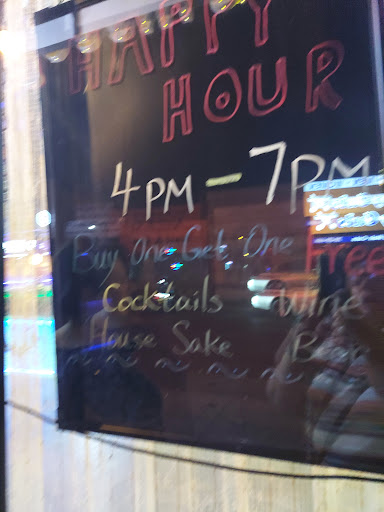 HAPPY
HOUR
4PM - 7PM
Buy One Get One Free
Cocktails Wine
House Sake Beer